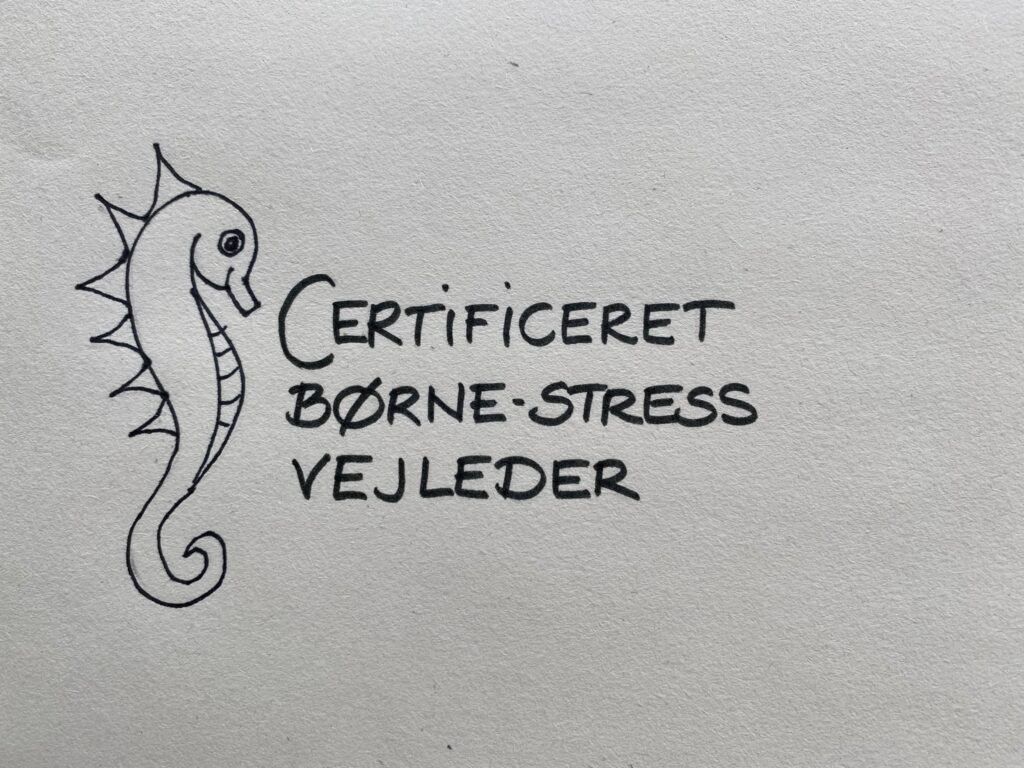 CERTiFiCERET
BØRNE-STRESS
VEJLEDER